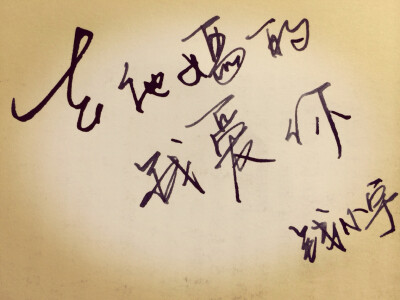 去他妈的
我爱你
钱小宇